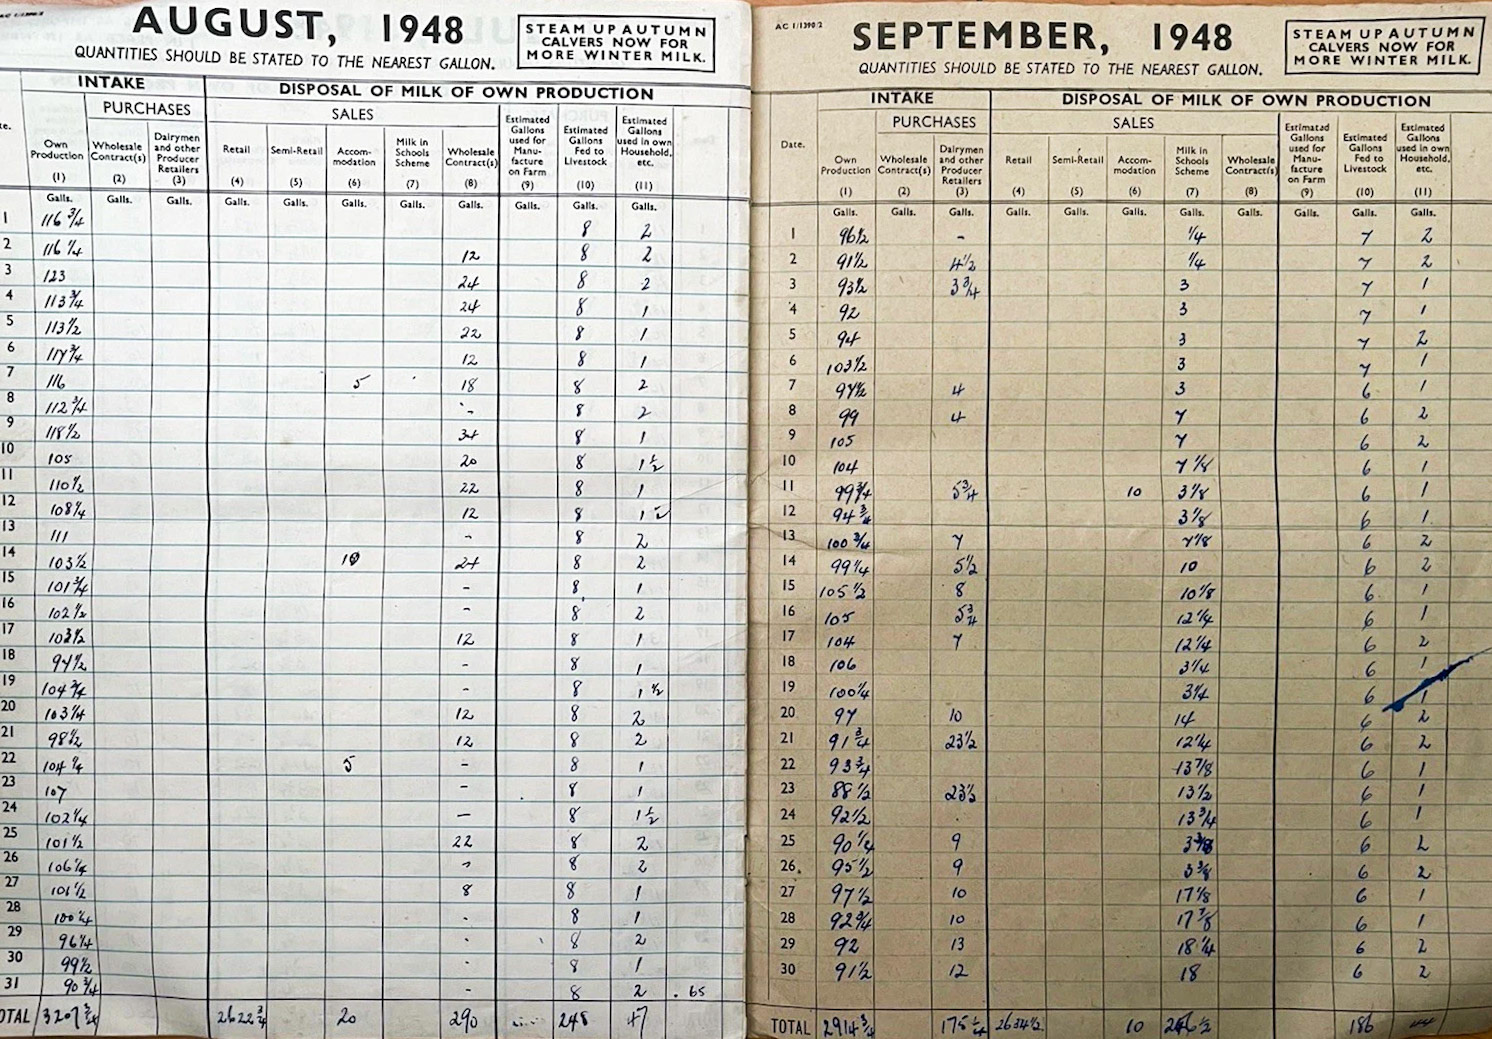 AUGUST, 1948
STEAM UP AUTUMN
CALVERS NOW FOR
MORE WINTER MILK.
QUANTITIES SHOULD BE STATED TO THE NEAREST GALLON.
INTAKE DISPOSAL OF MILK OF OWN PRODUCTION
PURCHASES SALES
Own Production (1) Wholesale Contract(s) (2) Dairymen and other Producer Retailers (3) Retail (4) Semi-Retail (5) Accom-modation (6) Milk in Schools Scheme (7) Wholesale Contract(s) (8) Estimated Gallons used for Manu-facture on Farm (9) Estimated Gallons Fed to Livestock (10) Estimated Gallons used in own Household, etc. (11)
Galls. Galls. Galls. Galls. Galls. Galls. Galls. Galls. Galls. Galls. Galls.
1 116 3/4 8 2
2 116 1/4 12 8 2
3 123 24 8 2
4 113 3/4 24 8 1
5 113 1/2 22 8 1
6 117 3/4 12 8 1
7 116 5 18 8 2
8 112 3/4 - 8 2
9 118 1/2 34 8 1
10 105 20 8 1 1/2
11 110 1/2 22 8 1
12 108 1/4 12 8 1 1/2
13 111 - 8 2
14 103 1/2 10 24 8 2
15 101 3/4 - 8 1
16 102 1/2 - 8 2
17 103 1/2 12 8 1
18 97 1/2 - 8 1
19 104 3/4 - 8 1 1/2
20 103 1/4 12 8 2
21 98 1/2 12 8 2
22 104 1/4 5 - 8 1
23 107 - 8 1
24 102 1/4 - 8 1 1/2
25 101 1/2 22 8 2
26 106 1/4 - 8 2
27 101 1/2 8 8 1
28 100 1/4 - 8 1
29 96 1/4 - 8 2
30 99 1/2 - 8 1
31 90 3/4 - 8 2 . 65
TOTAL 3207 3/4 2622 3/4 20 290 248 47
AC 1/1390/2
SEPTEMBER, 1948
STEAM UP AUTUMN
CALVERS NOW FOR
MORE WINTER MILK.
QUANTITIES SHOULD BE STATED TO THE NEAREST GALLON.
INTAKE DISPOSAL OF MILK OF OWN PRODUCTION
PURCHASES SALES
Date. Own Production (1) Wholesale Contract(s) (2) Dairymen and other Producer Retailers (3) Retail (4) Semi-Retail (5) Accom-modation (6) Milk in Schools Scheme (7) Wholesale Contract(s) (8) Estimated Gallons used for Manu-facture on Farm (9) Estimated Gallons Fed to Livestock (10) Estimated Gallons used in own Household, etc. (11)
Galls. Galls. Galls. Galls. Galls. Galls. Galls. Galls. Galls. Galls. Galls.
1 96 1/2 - 1/4 7 2
2 91 1/2 4 1/2 1/4 7 2
3 93 1/2 3 3/4 3 7 1
4 92 3 7 1
5 94 3 7 2
6 103 1/2 3 7 1
7 97 1/2 4 3 6 1
8 99 4 7 6 2
9 105 7 6 2
10 104 7 1/8 6 1
11 99 3/4 5 3/4 10 3 1/8 6 1
12 94 3/4 3 1/8 6 1
13 100 3/4 7 7 1/8 6 2
14 99 1/4 5 1/2 10 6 2
15 105 1/2 8 10 1/8 6 1
16 105 5 3/4 12 1/4 6 1
17 104 7 12 1/4 6 2
18 106 3 1/4 6 1
19 100 1/4 3 1/4 6 1
20 97 10 14 6 2
21 91 3/4 23 1/2 12 1/4 6 2
22 93 3/4 13 7/8 6 1
23 88 1/2 23 1/2 13 1/2 6 1
24 92 1/2 13 3/4 6 1
25 90 1/4 9 6 2
26 95 1/2 9 3 3/8 6 2
27 97 1/2 10 17 1/8 6 1
28 92 3/4 10 17 7/8 6 1
29 92 13 18 1/4 6 2
30 91 1/2 12 18 6 2
TOTAL 2914 3/4 175 1/4 2634 1/2 10 186 44